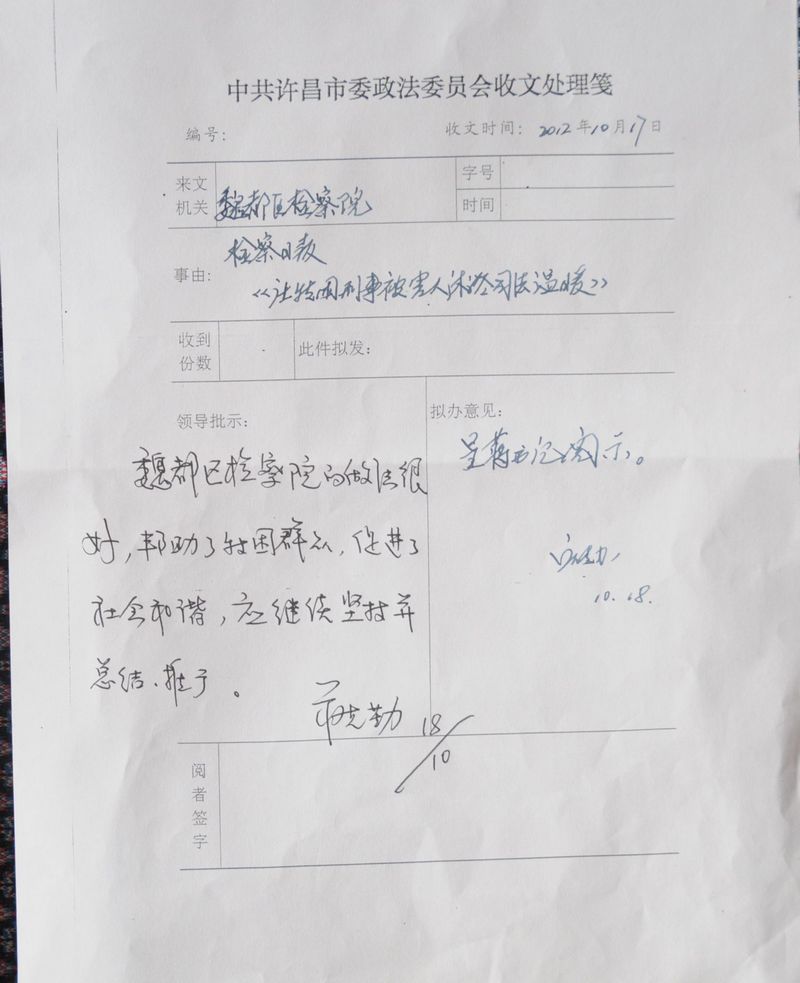 中共许昌市委政法委员会收文处理笺
编号：
收文时间：2012年10月17日
来文机关
魏都区检察院
字号
时间
事由：
检察日报
《让特困刑事被害人沐浴司法温暖》
收到份数
此件拟发：
领导批示：
魏都区检察院的做法很
好，帮助了特困群众，促进了
社会和谐，应继续坚持并
总结、推广。
蒋克勤 18/10
拟办意见：
呈蒋书记阅示。
10.18.
阅者签字